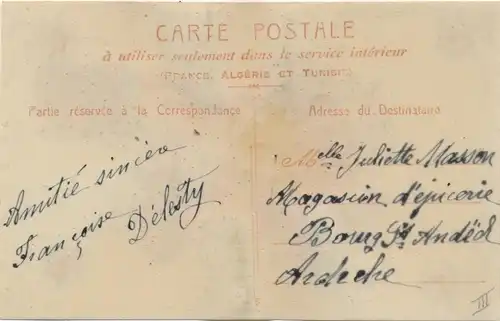 CARTE POSTALE
à utiliser seulement dans le service intérieur
(FRANCE, ALGÉRIE ET TUNISIE)
Partie réservée à la Correspondance
Amitié sincère
Françoise Délesty
Adresse du Destinataire
Melle Juliette Masson
Magasion d'épicerie
Bourg St Andéol
Ardèche
III